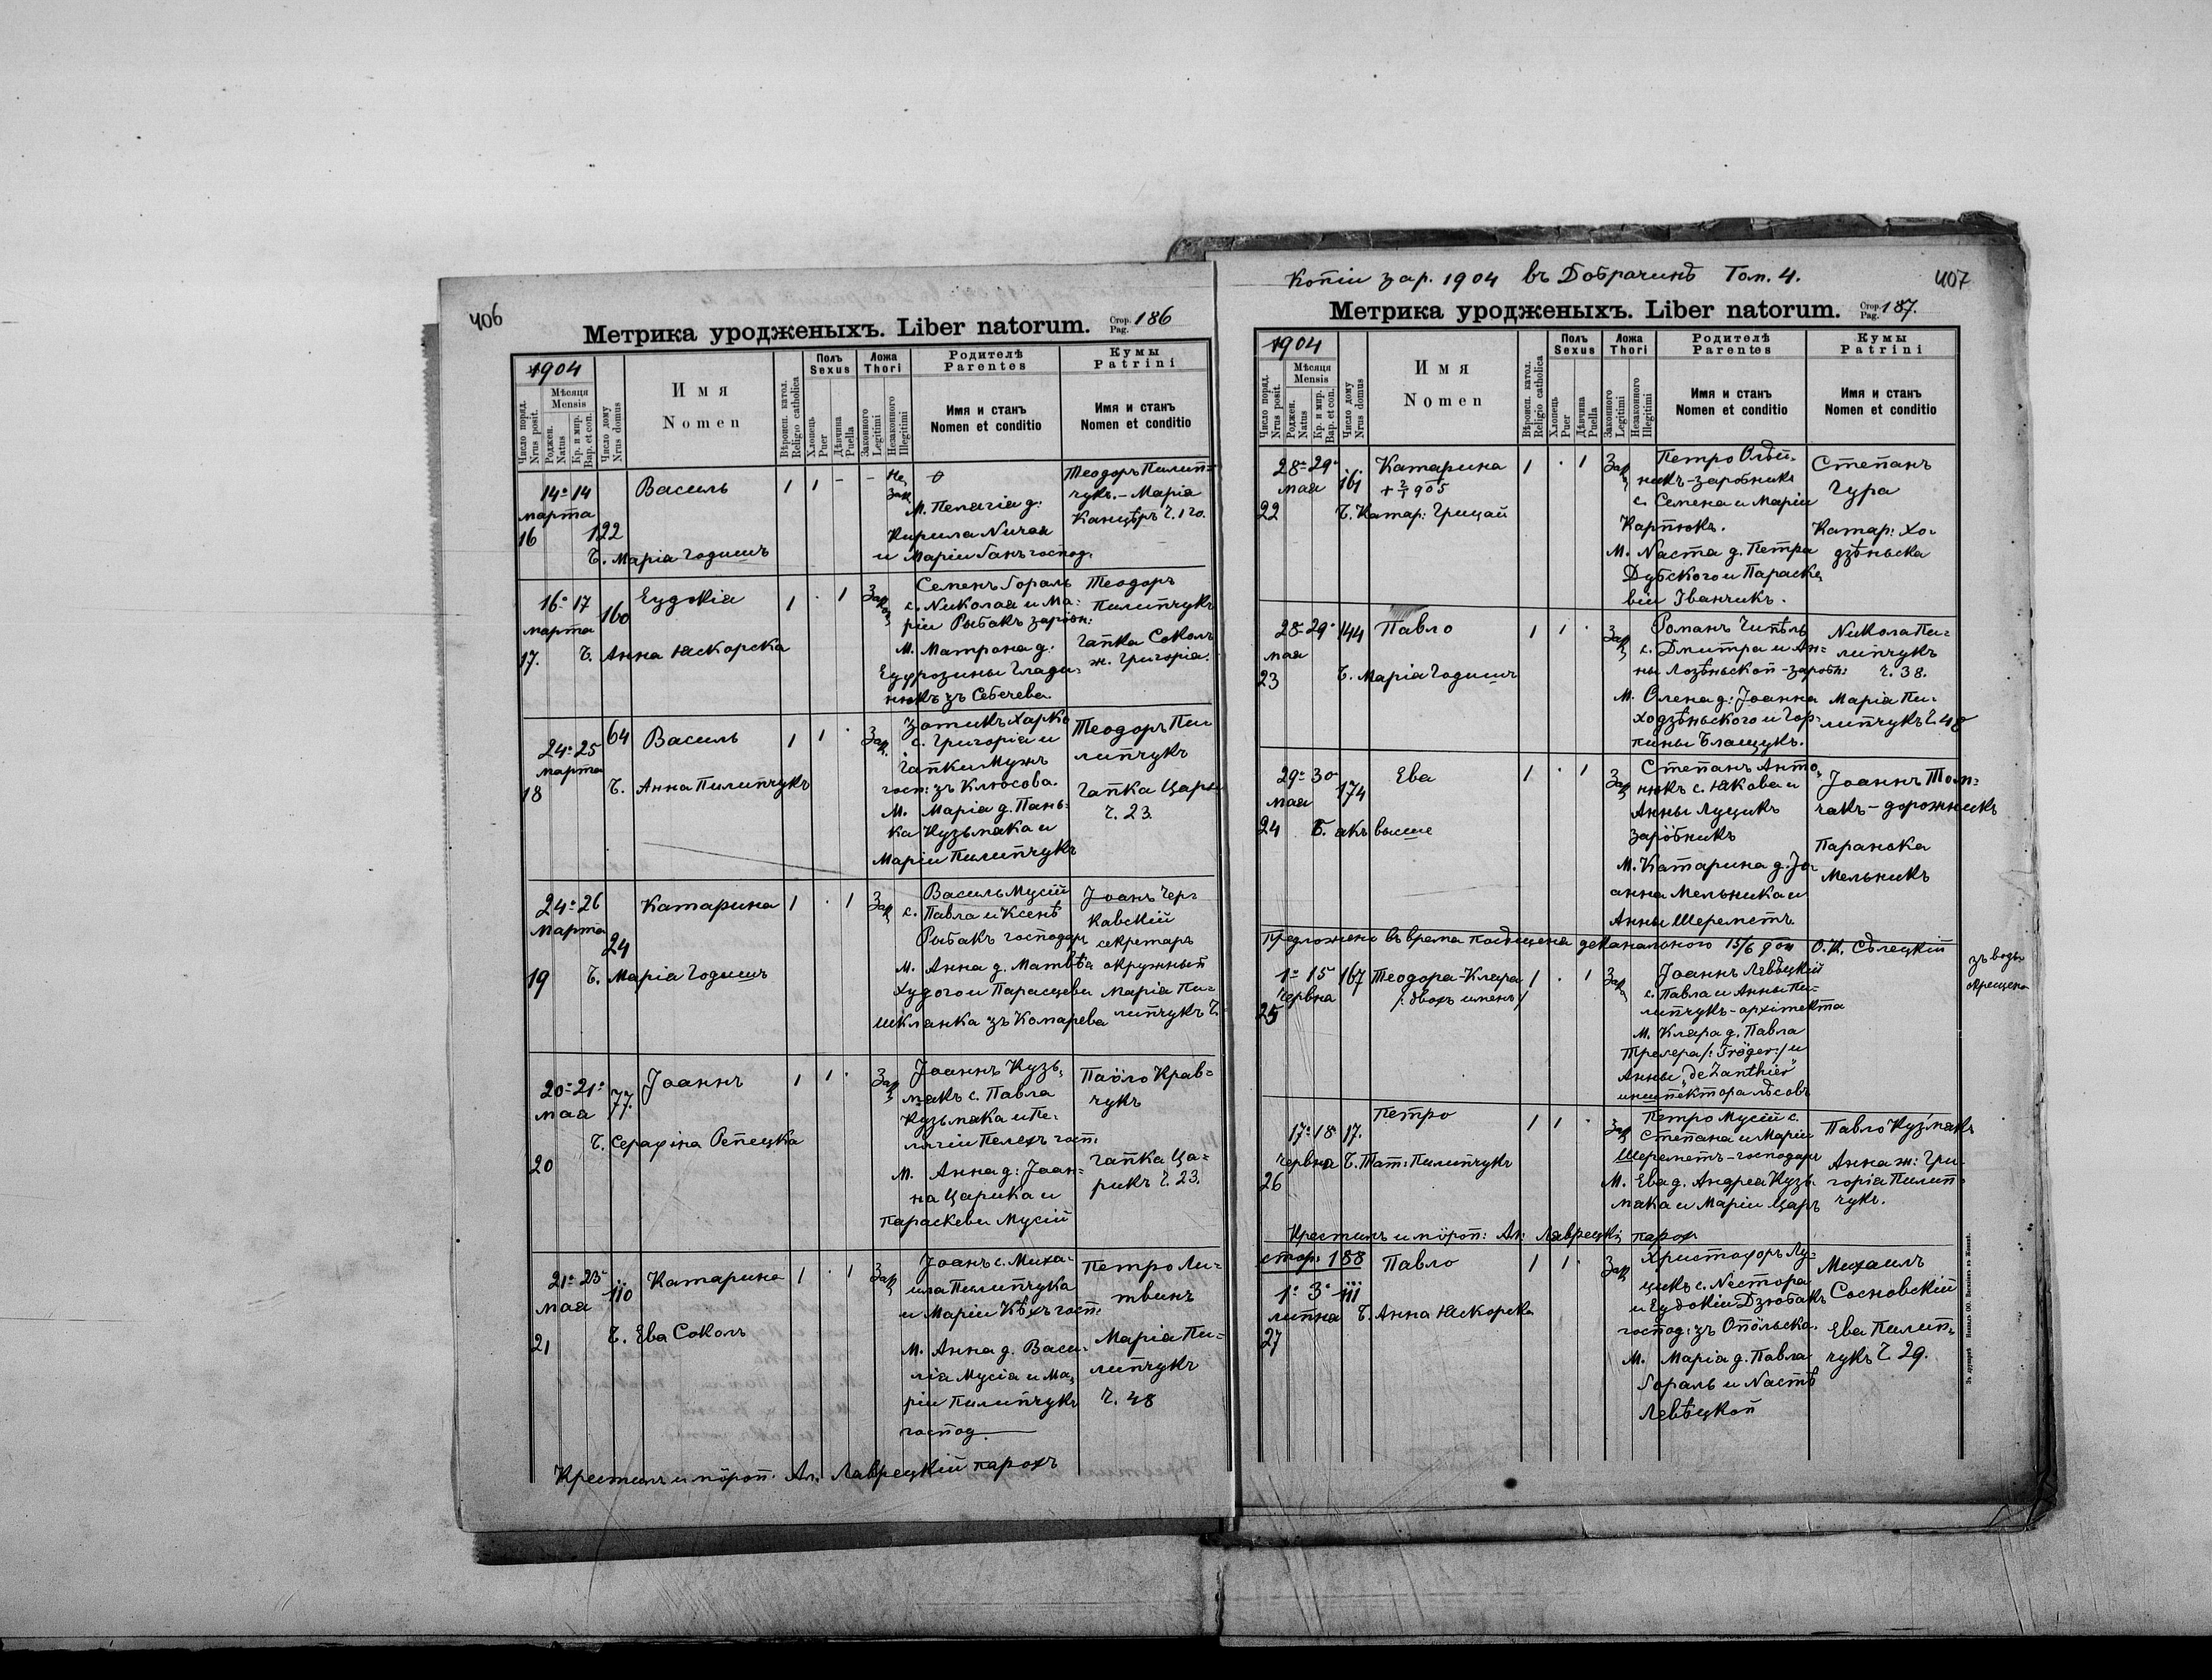 406
Метрика уродженыхъ. Liber natorum. Стор. Pag. 186
1904
Число поряд. Nrus posit.
Мѣсяця Mensis
Роджен. Natus
Кр. и мир. Bap. et con.
Число дому Nrus domus
Имя
Nomen
Вѣроисп. катол. Religio catholica
Полъ Sexus
Хлопець Puer
Дѣвчина Puella
Ложа Thori
Законного Legitimi
Незаконного Illegitimi
Родителѣ Parentes
Имя и станъ
Nomen et conditio
Кумы Patrini
Имя и станъ
Nomen et conditio
14 14
марта
16
122
Василь
1 1 - -
Не
зак
Б. Марія Годишъ
М. Пелагія д.
Кирила Ничая
и Маріи Ганъ господ.
Теодоръ Пилип=
чукъ. - Марія
16 17
марта
17.
160
Еудокія
1 . 1
Б. Анна Яскорска
Семенъ Гораль
с. Николая и Ма=
ріи Рыбакъ заробн:
М. Матрона д.
Еуфрозины Глади=
нюкъ зъ Себечева
Теодоръ
Пилипчукъ
Гапка Соколъ
ж. Григорія.
24 25
марта
18
64
Василь
1 1 .
Б. Анна Пилипчукъ
Зотикъ Харко
с. Григорія и
Гапки Мужъ
госп: зъ Клюсова.
М. Марія д. Пань=
ка Кузьмака и
Маріи Пилипчукъ
Теодоръ Пи=
липчукъ
Гапка Царъ
Ч. 23.
24 26
марта
19
24
Катарина
1 . 1
Б. Марія Годишъ
Василь Мусій
с. Павла и Ксенѣ
Рыбакъ господарь
М. Анна д. Матвѣя
Худого и Парасцеви
Шклянка зъ Комарева
Іоанъ Чер=
кавскій
секретарь
окружный
Марія Пи=
липчукъ Ч.
20 21
мая
20
77.
Іоаннъ
1 1 .
Б. Серафіна Репецка
Іоаннъ Кузь=
мякъ с. Павла
Кузьмака и Пе=
лагіи Пелехъ госп.
М. Анна д: Іоан=
на Царика и
Параскеви Мусій
Паöло Крав=
чукъ
Гапка Ца=
рикъ Ч. 23.
21 23
мая
21
110
Катарина
1 . 1
Б. Ева Соколъ
Іоанъ с. Миха=
ила Пилипчука
и Маріи Кѣхъ госп:
М. Анна д. Васи=
лія Мусія и Ма=
ріи Пилипчукъ
господ.
Петро Ли=
твинъ
Марія Пи=
липчукъ
Ч. 48
Крестилъ и мѵроп. Ал. Лаврецкій парохъ
Копіи за р. 1904 въ Добрачинѣ Том. 4.
407
Метрика уродженыхъ. Liber natorum. Стор. Pag. 187.
1904
Число поряд. Nrus posit.
Мѣсяця Mensis
Роджен. Natus
Кр. и мир. Bap. et con.
Число дому Nrus domus
Имя
Nomen
Вѣроисп. катол. Religio catholica
Полъ Sexus
Хлопець Puer
Дѣвчина Puella
Ложа Thori
Законного Legitimi
Незаконного Illegitimi
Родителѣ Parentes
Имя и станъ
Nomen et conditio
Кумы Patrini
Имя и станъ
Nomen et conditio
28 29
мая
22
161
Катарина
1 . 1
Б. Катар: Грицай
с. Семена и Маріи
Карпюкъ.
М. Nаста д. Петра
Дубского и Параске
віи Іванчикъ.
Степанъ
Чура
Катар: Хо=
дзѣньска
28 29
мая
23
144
Павло
1 1 .
Б. Марія Годишъ
Романъ Чипѣль
с. Дмитра и Ан=
ны Лозѣньскои - заробн:
М. Олена д: Іоанна
Ходзѣньского и Гор=
пины Блащукъ.
Nикола Пи=
липчукъ
Ч. 38.
Марія Пи=
липчукъ Ч. 48
29 30
мая
24
174
Ева
1 . 1
Б. акъ выше
Степанъ Анто=
нюкъ с. Якова и
Анны Луцикъ
зарöбникъ
М. Катарина д. Іо=
анна Мельника и
Анны Шереметъ
Іоаннъ Том=
чакъ - дорожникъ
Паранька
Мельникъ
Предложено въ время посѣщеня деканального 15/6 904 О. И. Сѣлецкій
1 15
червня
25
167
Теодора-Клара
/: двохъ именъ /
1 . 1
Іоаннъ Левѣцкій
с. Павла и Анны Пи=
липчукъ - архітекта
М. Клара д. Павла
Трегера /: Tröger :/ и
Анны „de Zanthier"
иншпектора лѣсовъ
зъ воды
окрещена
17 18
червня
26
17.
Петро
1 1 .
Б. Тат: Пилипчукъ
Петро Мусій с.
Степана и Маріи
Шереметъ - господарь
М. Ева д. Андрея Кузь=
мака и Маріи Царъ
Павло Кузьмякъ
Анна ж: Гри=
горія Пилип=
чукъ.
Крестилъ и мѵроп: Ал: Лаврецкій парох
стор. 188
1 3
липня
27
111
Павло
1 1 .
Б. Анна Яскорска
Христофоръ Лу=
цикъ с. Nестора
и Еудокіи Дзюбакъ
господ: зъ Опöльска.
М. Марія д. Павла
Гораль и Nастѣ
Левѣцкой
Михаилъ
Сосновскій
Ева Пилип=
чукъ Ч. 29.